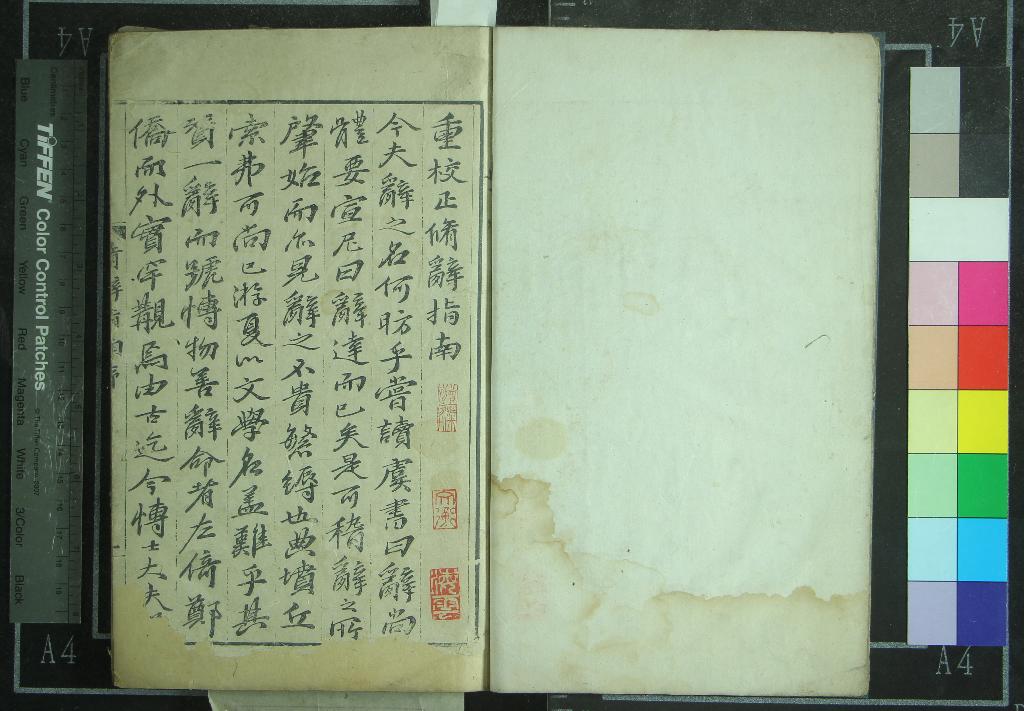 重校正脩辭指南
今夫辭之名何昉乎嘗讀虞書曰辭尚
體要宣尼曰辭達而已矣是可稽辭之所
肇始而亦見辭之不貴繁縟也典墳丘
索弗可尚已游夏以文學名蓋難乎其
一辭而號博物善辭命者左倚鄭
僑而外寔罕覯焉由古迄今博士大夫
脩辭指南序
一
TIFFEN Color Control Patches
© The Tiffen Company, 2007
Centimetres
Blue Cyan Green Yellow Red Magenta White 3/Color Black
A4
A4
A4
A4